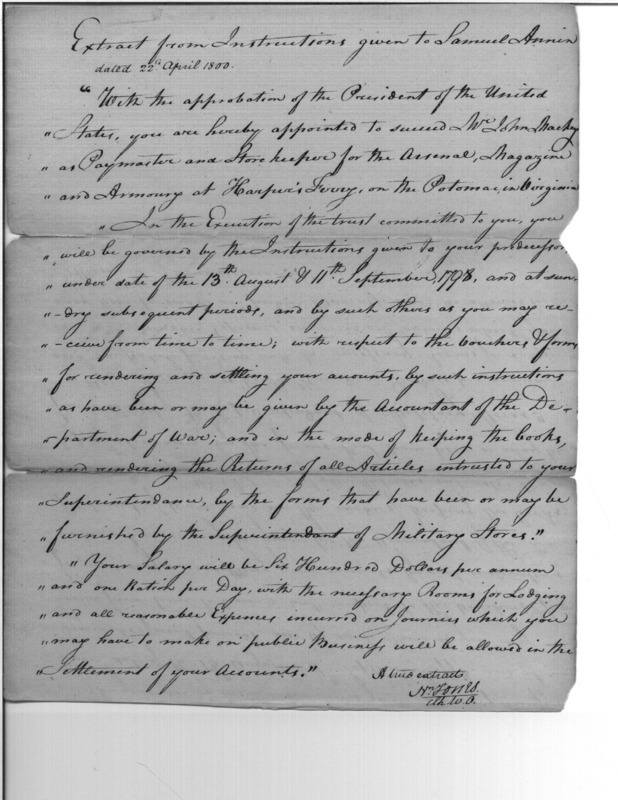 Extract from Instructions given to Samuel Annin
dated 22d April 1800.
"With the approbation of the President of the United
" States, you are hereby appointed to succeed Mr. John Mackey
" as Paymaster and Storekeeper for the Arsenal, Magazine
" and Armoury at Harper's Ferry, on the Potomac, in Virginia
" In the Execution of the trust committed to you, you
" will be governed by the Instructions given to your predecessor,
" under date of the 13th August & 11th September, 1798, and at sun-
" -dry subsequent periods, and by such others as you may re-
" -ceive from time to time; with respect to the vouchers & forms
" for rendering and settling your accounts, by such instructions
" as have been or may be given by the Accountant of the De-
" -partment of War; and in the mode of keeping the books,
" and rendering the Returns of all Articles intrusted to your
" Superintendance, by the forms that have been or may be
" furnished by the Superintendant of Military Stores."
" Your Salary will be Six Hundred Dollars per annum
" and one Ration per Day, with the necessary Rooms for Lodging
" and all reasonable Expenses incurred on Journies which you
" may have to make on public Business will be allowed in the
" Settlement of your Accounts."
A true extract
Jones.
Clk W.O.